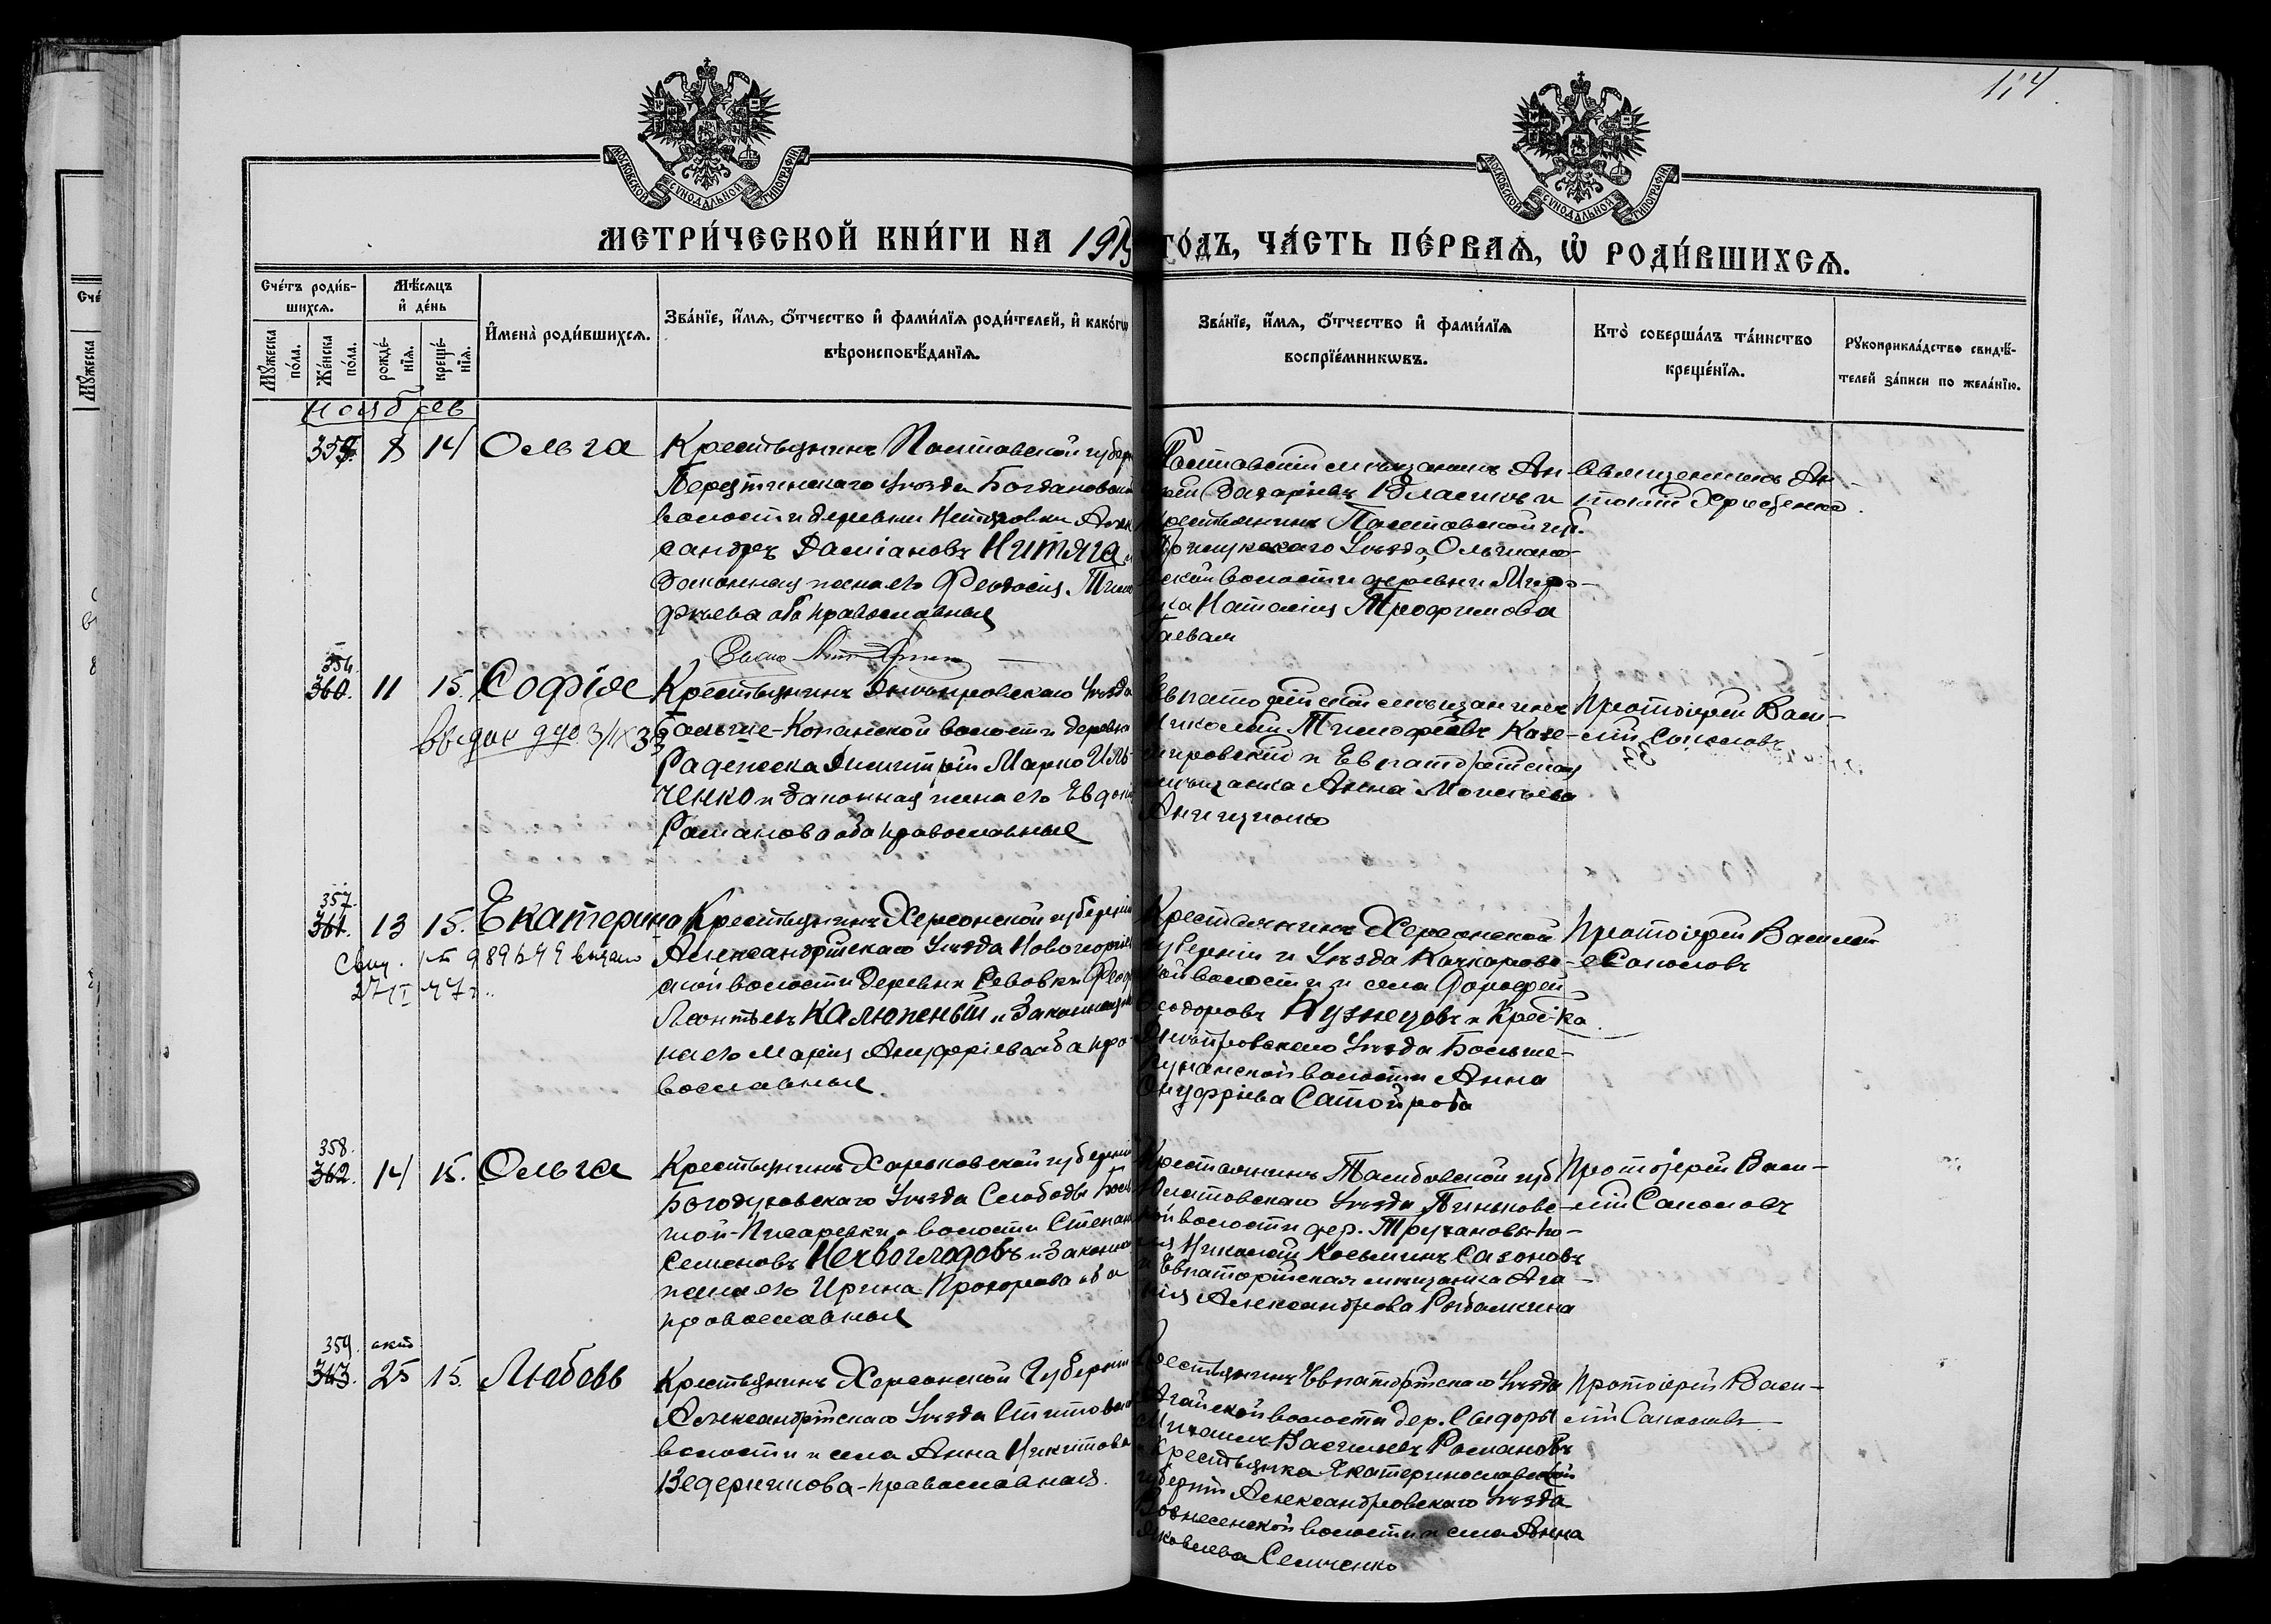 114
МОСКОВСКОЙ СѴНОДАЛЬНОЙ ТИПОГРАФІИ
МОСКОВСКОЙ СѴНОДАЛЬНОЙ ТИПОГРАФІИ
МЕТРИ́ЧЕСКОЙ КНИ́ГИ НА 1913 ГО́ДЪ, ЧА́СТЬ ПЕ́РВАѦ, Ѡ҆ РОДИ́ВШИХСѦ.
Сче́тъ роди́в-
шихсѧ.
Мꙋ́жеска по́ла.
Же́нска по́ла.
Мѣ́сѧцъ и҆ де́нь
рожде́нїѧ.
креще́нїѧ.
И҆мена̀ роди́вшихсѧ.
Зва́нїе, и҆́мѧ, ѻ҆́тчество и҆ фами́лїѧ роди́телей, и҆ како́гѡ
вѣроисповѣ́данїѧ.
Зва́нїе, и҆́мѧ, ѻ҆́тчество и҆ фами́лїѧ
воспрїе́мникѡвъ.
Кто̀ соверша́лъ та́инство
креще́нїѧ.
Рꙋкоприкла́дство свидѣ́-
телей за́писи по жела́нїю.
ноябрь
8 14 Ольга
Крестьянинъ Полтавской губерн
уѣзда Богдановской
волости деревни Алек
сандръ Даміановъ Нитяга и
законная жена его Феодосія Тимо
феева оба православные
Полтавскій мѣщанинъ Ан-
дрей Захаріевъ и
крестьянинъ Полтавской губ.
уѣзда
волости деревни
Наталія Трофимова
Гаевая
Священникъ Ан-
тоній
356
360. 11 15. Софія
Крестьянинъ Днѣпровскаго Уѣзда
Больше-Копанской волости деревни
Раденска Димитрій Марко Иль
ченко и законная жена его Евдокія
Романова оба православные
Евпаторійскій мѣщанинъ
Николай Тимофѣевъ Кази-
мировскій и Евпаторійская
мѣщанка Анна
Протоіерей Васи-
лій Соколовъ
357
361. 13 15. Екатерина
Свид. 989449 выдано
27/I 47 г.
Крестьянинъ Херсонской губерніи
Александрійскаго Уѣзда Новогеоргіев
ской волости деревни Ревовки Феод
Леонтьевъ Калюжный и законная же
на его Марія Ануфріева оба пра-
вославные.
Крестьянинъ Херсонской
губерніи и Уѣзда Качкаров-
ской волости и села Дорофей
Феодоровъ Кузнецовъ и Крест-ка
Днѣпровскаго Уѣзда Больше-
Копанской волости Анна
Онуфріева
Протоіерей Василій
Соколовъ
358.
362. 14 15. Ольга
Крестьянинъ Харьковской губерніи
Богодуховскаго Уѣзда Слободы Боль
шой-Писаревки и волости Степанъ
Семеновъ Нехвоглядовъ и законная
жена его Ирина Прохорова оба
православные
Крестьянинъ Тамбовской губ
Елатовскаго Уѣзда
волости дер.
Николай Косьминъ Сазоновъ
и Евпаторійская мѣщанка Ага-
пія Александрова Рыбалкина
Протоіерей Васи-
лій Соколовъ
359. окт
363. 25 15. Любовь
Крестьянинъ Херсонской Губерніи
Александрійскаго Уѣзда
волости и села Анна Никитова
Ведерникова-православная.
Крестьянинъ Евпаторійскаго Уѣзда
Агайской волости дер.
Михаилъ Васильевъ Романовъ
и Крестьянка Екатеринославской
губерніи Александровскаго Уѣзда
Вознесенской волости и села Анна
Яковлева Семченко
Протоіерей Васи-
лій Соколовъ